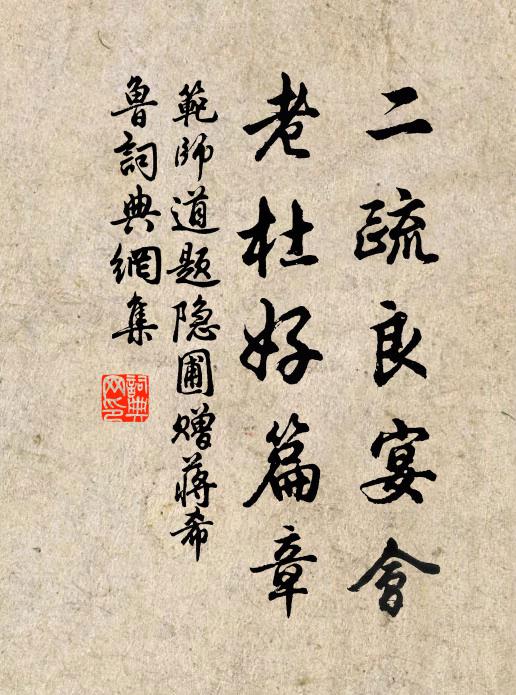 二疏良宴會
老杜好篇章
範師道題隐圃赠蒋希
魯詞典網集
詞典
网印